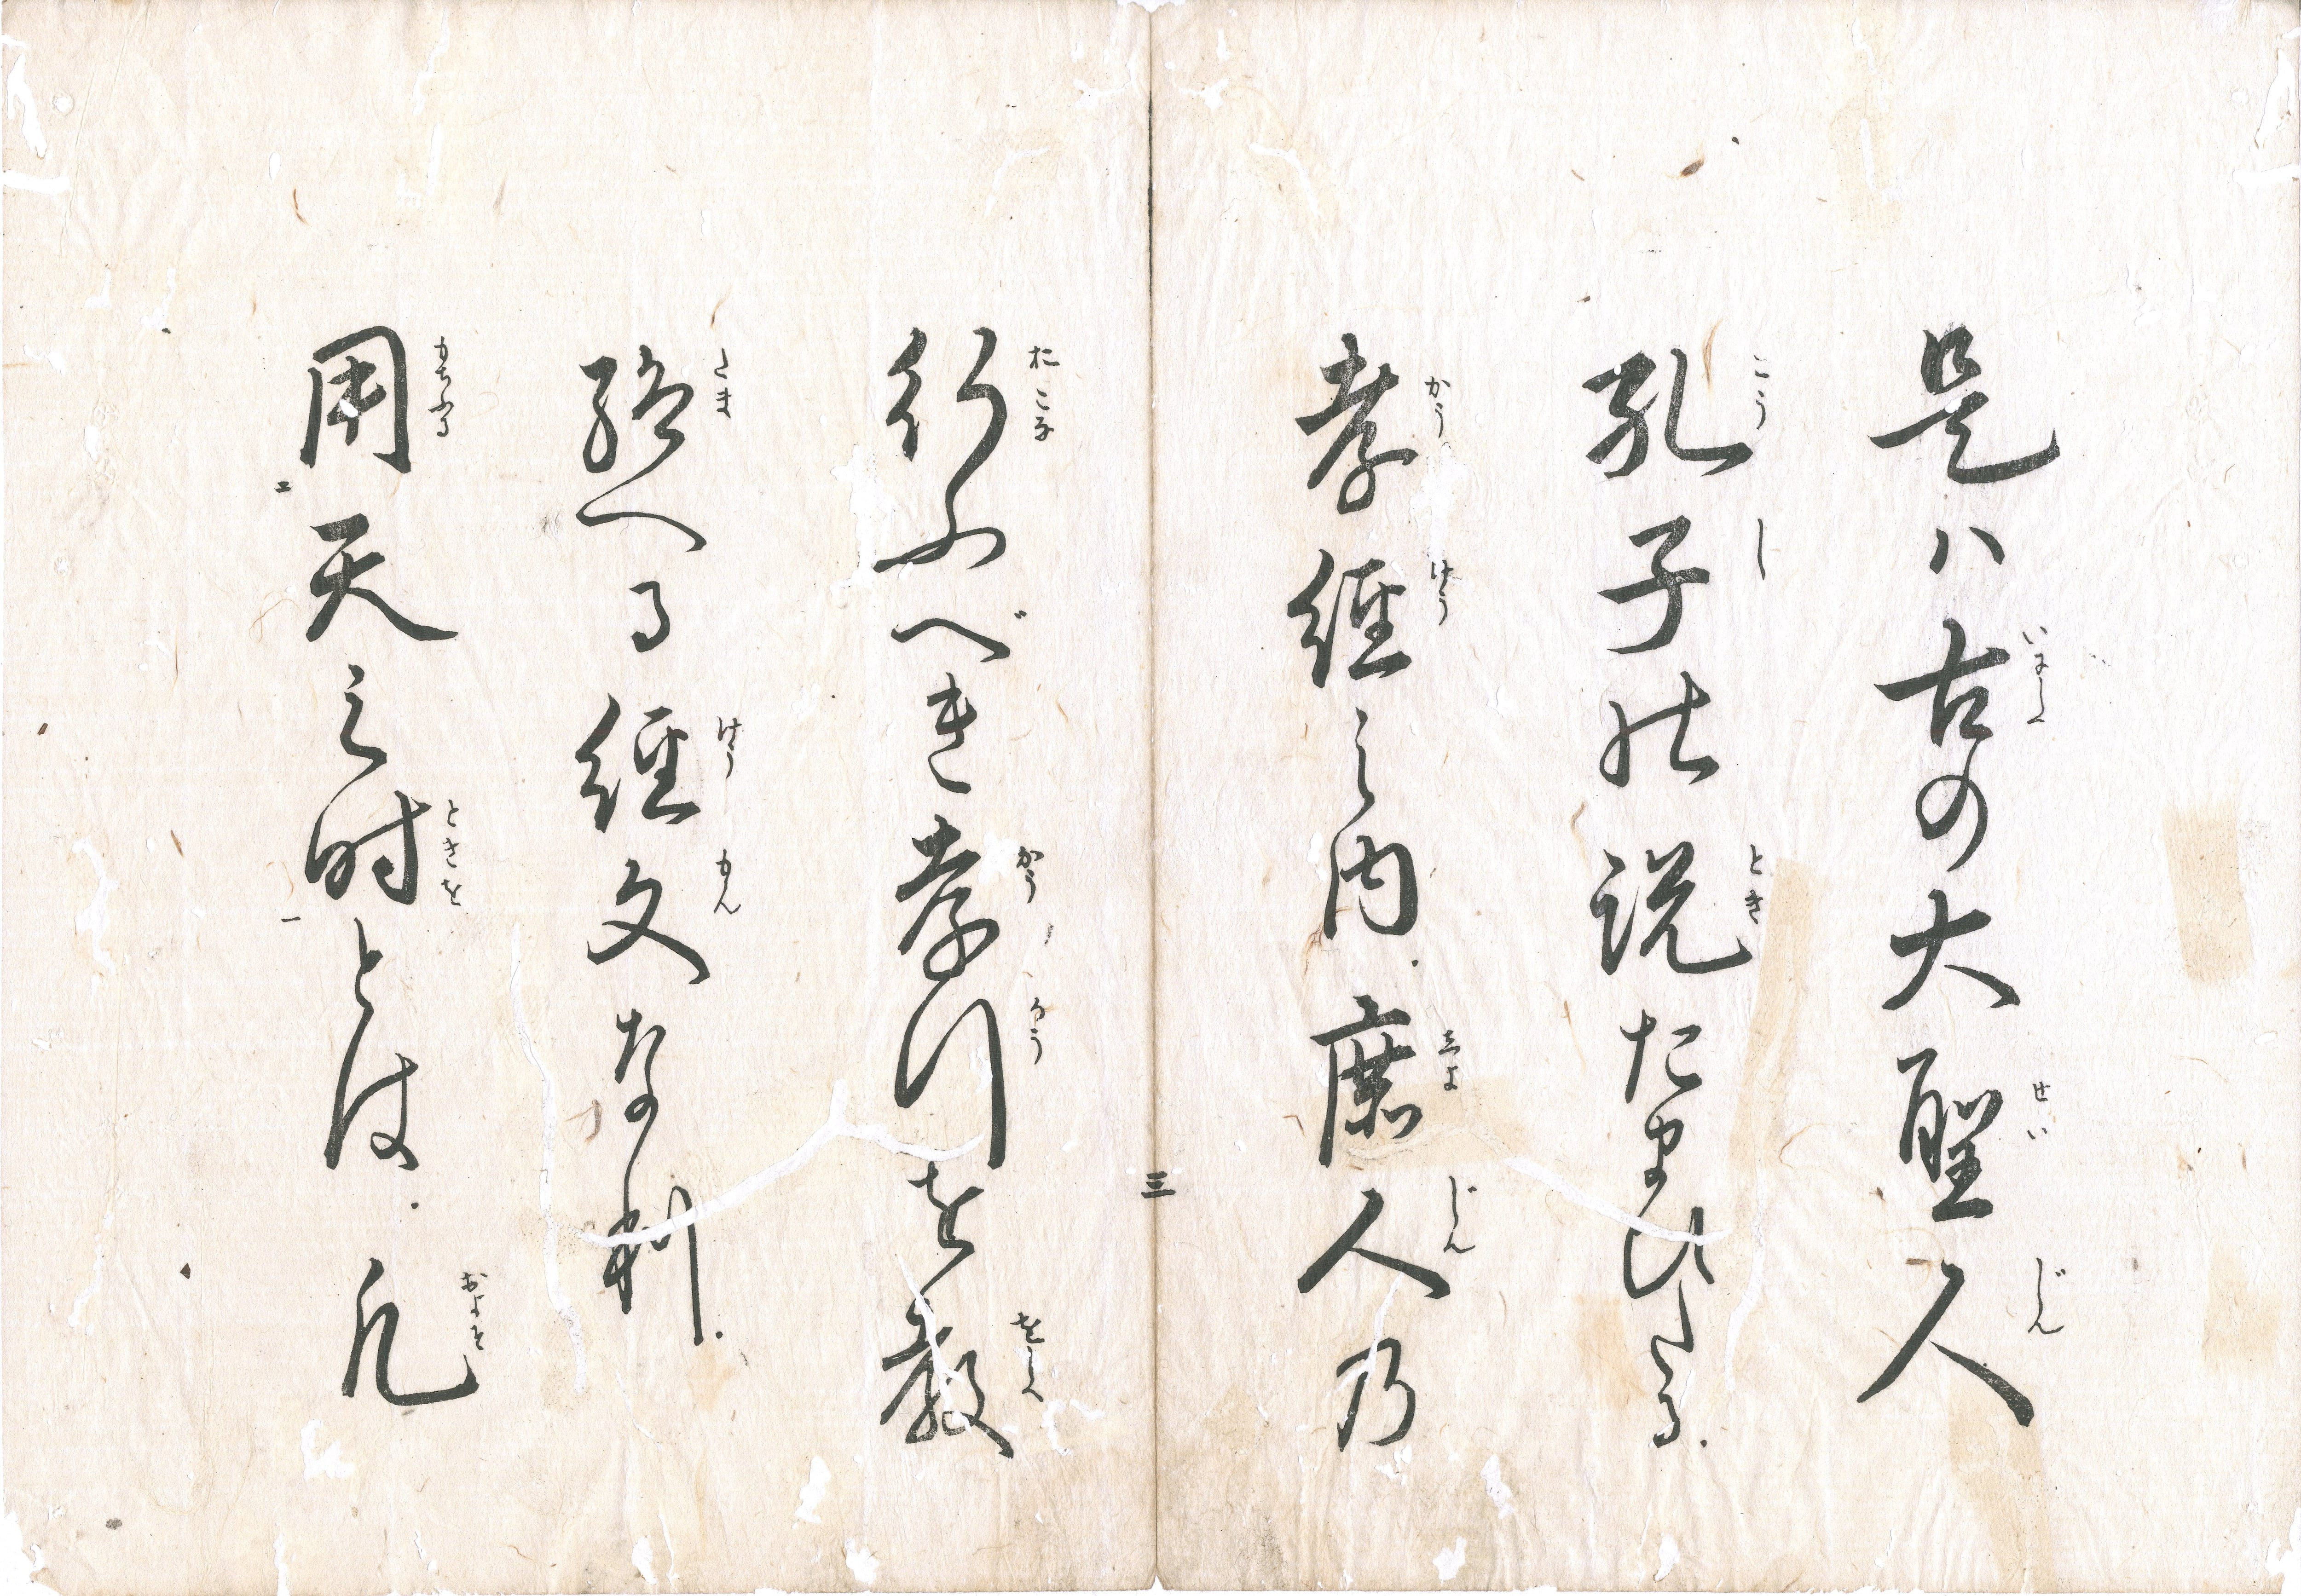 是ハ古の大聖人
孔子の説たまひたる
孝經之内庶人乃
行ふべき孝行を教
給へる經文なり
三
用天之時とは凡